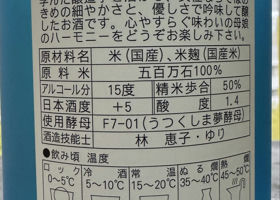 きめの細やかさと、優しさで吟味して醸
したお酒です。心やすらぐ味わいの母娘
のハーモニーをどうぞお楽しみ下さい。
原材料名 米(国産)、米麹(国産米)
原料米 五百万石100%
アルコール分 15度 精米歩合 50%
日本酒度 +5 酸度 1.4
使用酵母 F7-01(うつくしま夢酵母)
酒造技能士 林 恵子・ゆり
●飲み頃 温度
ロック 冷 常温 ぬる燗 熱燗
0〜5℃ 5〜10℃ 15〜20℃ 35〜40℃ 45〜50℃